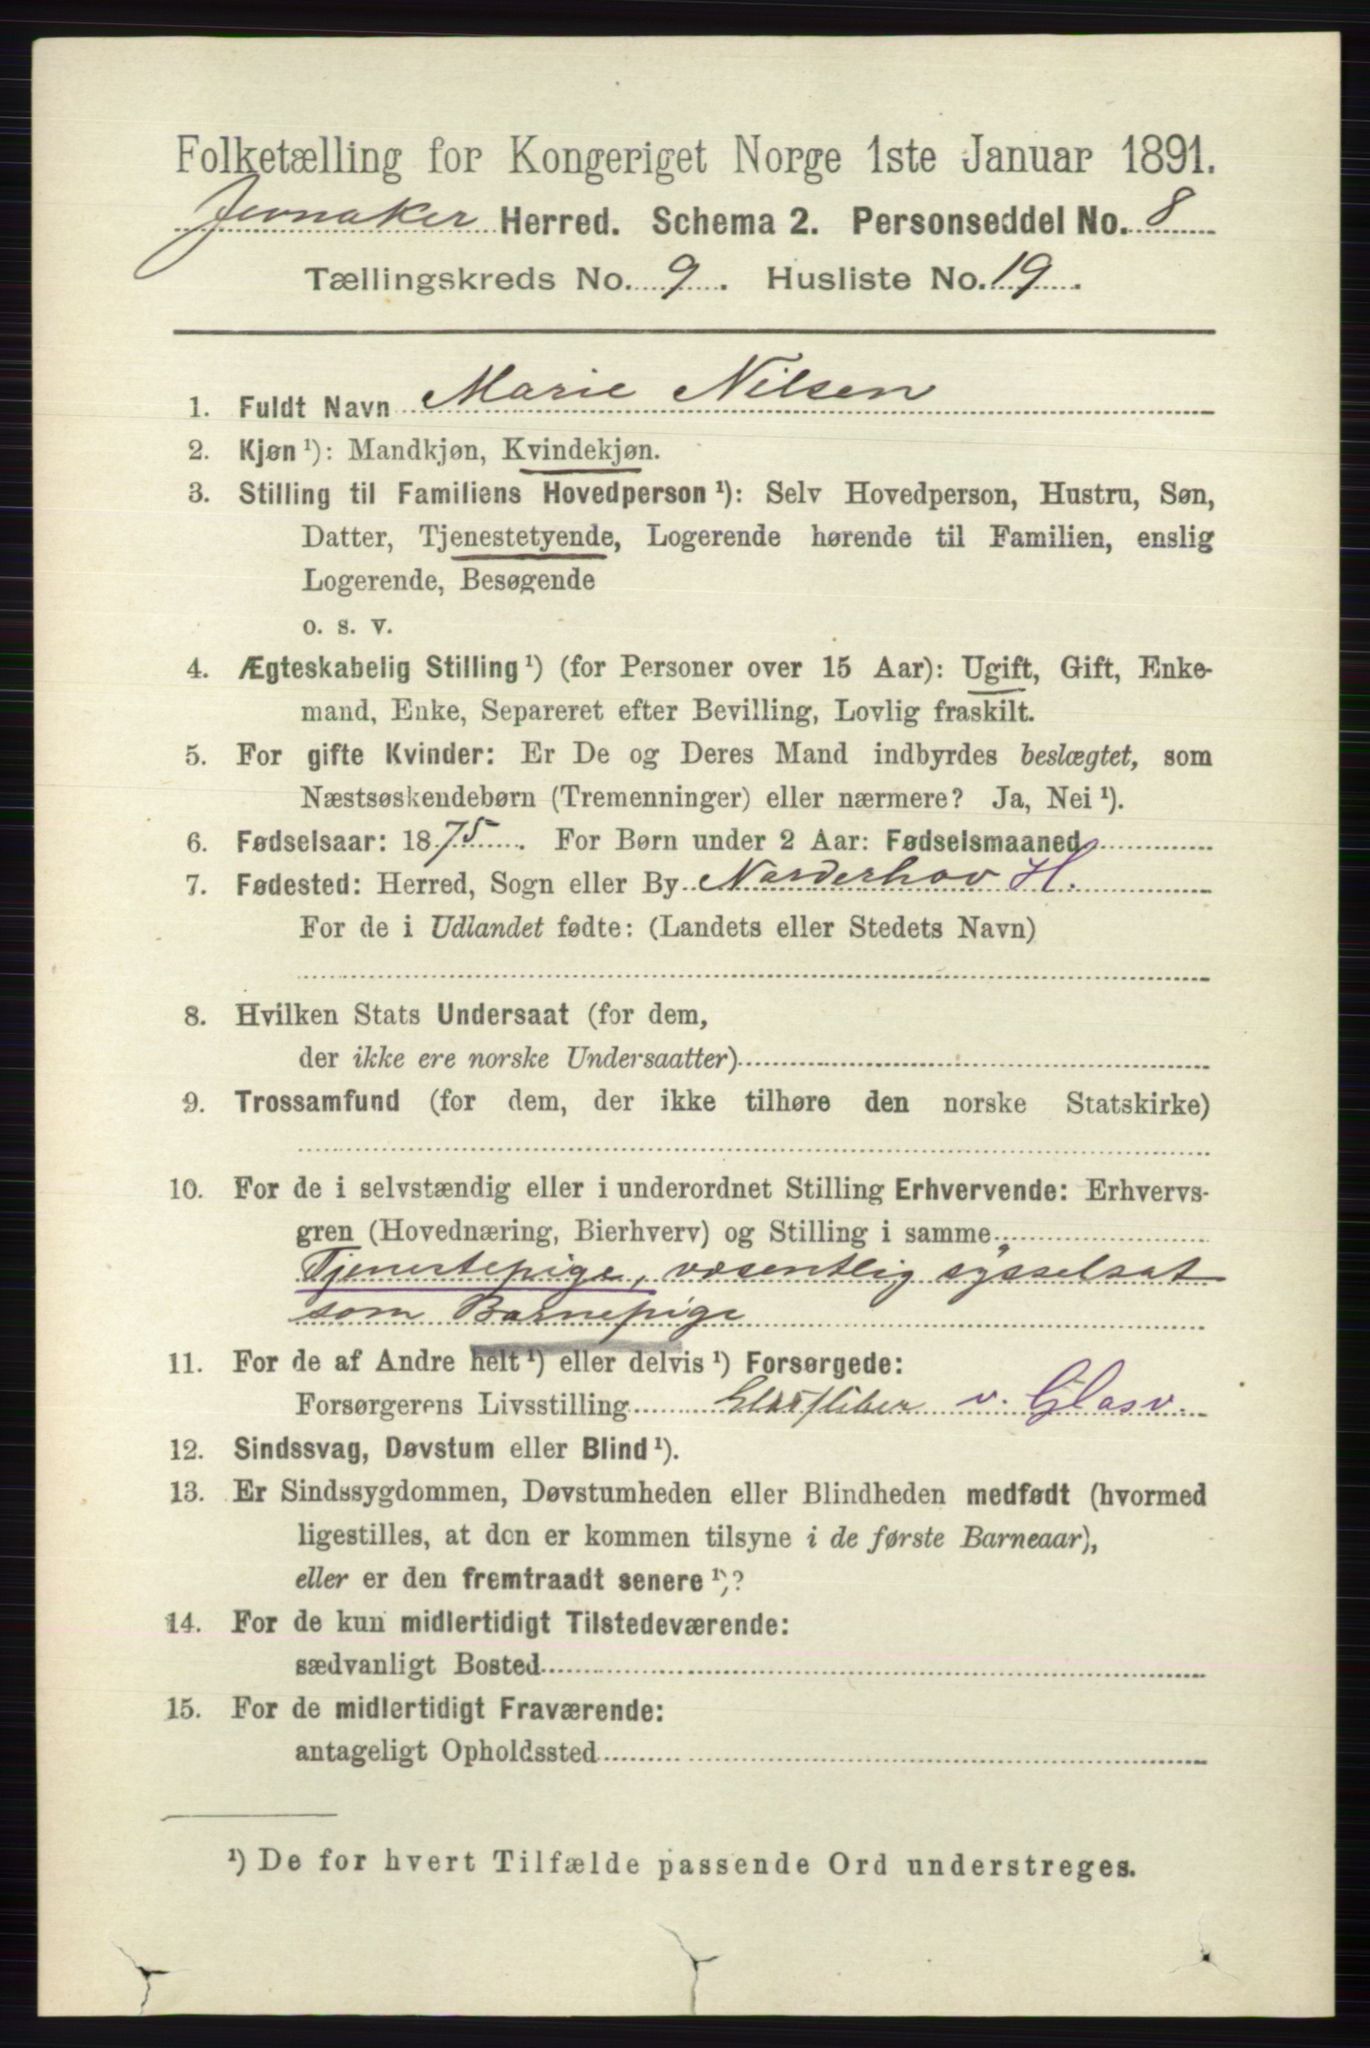 Folketælling for Kongeriget Norge 1ste Januar 1891.
Jevnaker Herred. Schema 2. Personseddel No. 8
Tællingskreds No. 9. Husliste No. 19.
1. Fuldt Navn Marie Nilsen
2. Kjøn ¹): Mandkjøn, Kvindekjøn.
3. Stilling til Familiens Hovedperson ¹): Selv Hovedperson, Hustru, Søn,
Datter, Tjenestetyende, Logerende hørende til Familien, enslig
Logerende, Besøgende
o. s. v.
4. Ægteskabelig Stilling ¹) (for Personer over 15 Aar): Ugift, Gift, Enke-
mand, Enke, Separeret efter Bevilling, Lovlig fraskilt.
5. For gifte Kvinder: Er De og Deres Mand indbyrdes beslægtet, som
Næstsøskendebørn (Tremenninger) eller nærmere? Ja, Nei ¹).
6. Fødselsaar: 1875. For Børn under 2 Aar: Fødselsmaaned
7. Fødested: Herred, Sogn eller By Norderhov H.
For de i Udlandet fødte: (Landets eller Stedets Navn)
8. Hvilken Stats Undersaat (for dem,
der ikke ere norske Undersaatter)
9. Trossamfund (for dem, der ikke tilhøre den norske Statskirke)
10. For de i selvstændig eller i underordnet Stilling Erhvervende: Erhvervs-
gren (Hovednæring, Bierhverv) og Stilling i samme
Tjenestepige, væsentlig sysselsat
som Barnepige
11. For de af Andre helt ¹) eller delvis ¹) Forsørgede:
Forsørgerens Livsstilling Glassliber v. Glasv.
12. Sindssvag, Døvstum eller Blind ¹).
13. Er Sindssygdommen, Døvstumheden eller Blindheden medfødt (hvormed
ligestilles, at den er kommen tilsyne i de første Barneaar),
eller er den fremtraadt senere ¹)?
14. For de kun midlertidigt Tilstedeværende:
sædvanligt Bosted
15. For de midlertidigt Fraværende:
antageligt Opholdssted
¹) De for hvert Tilfælde passende Ord understreges.